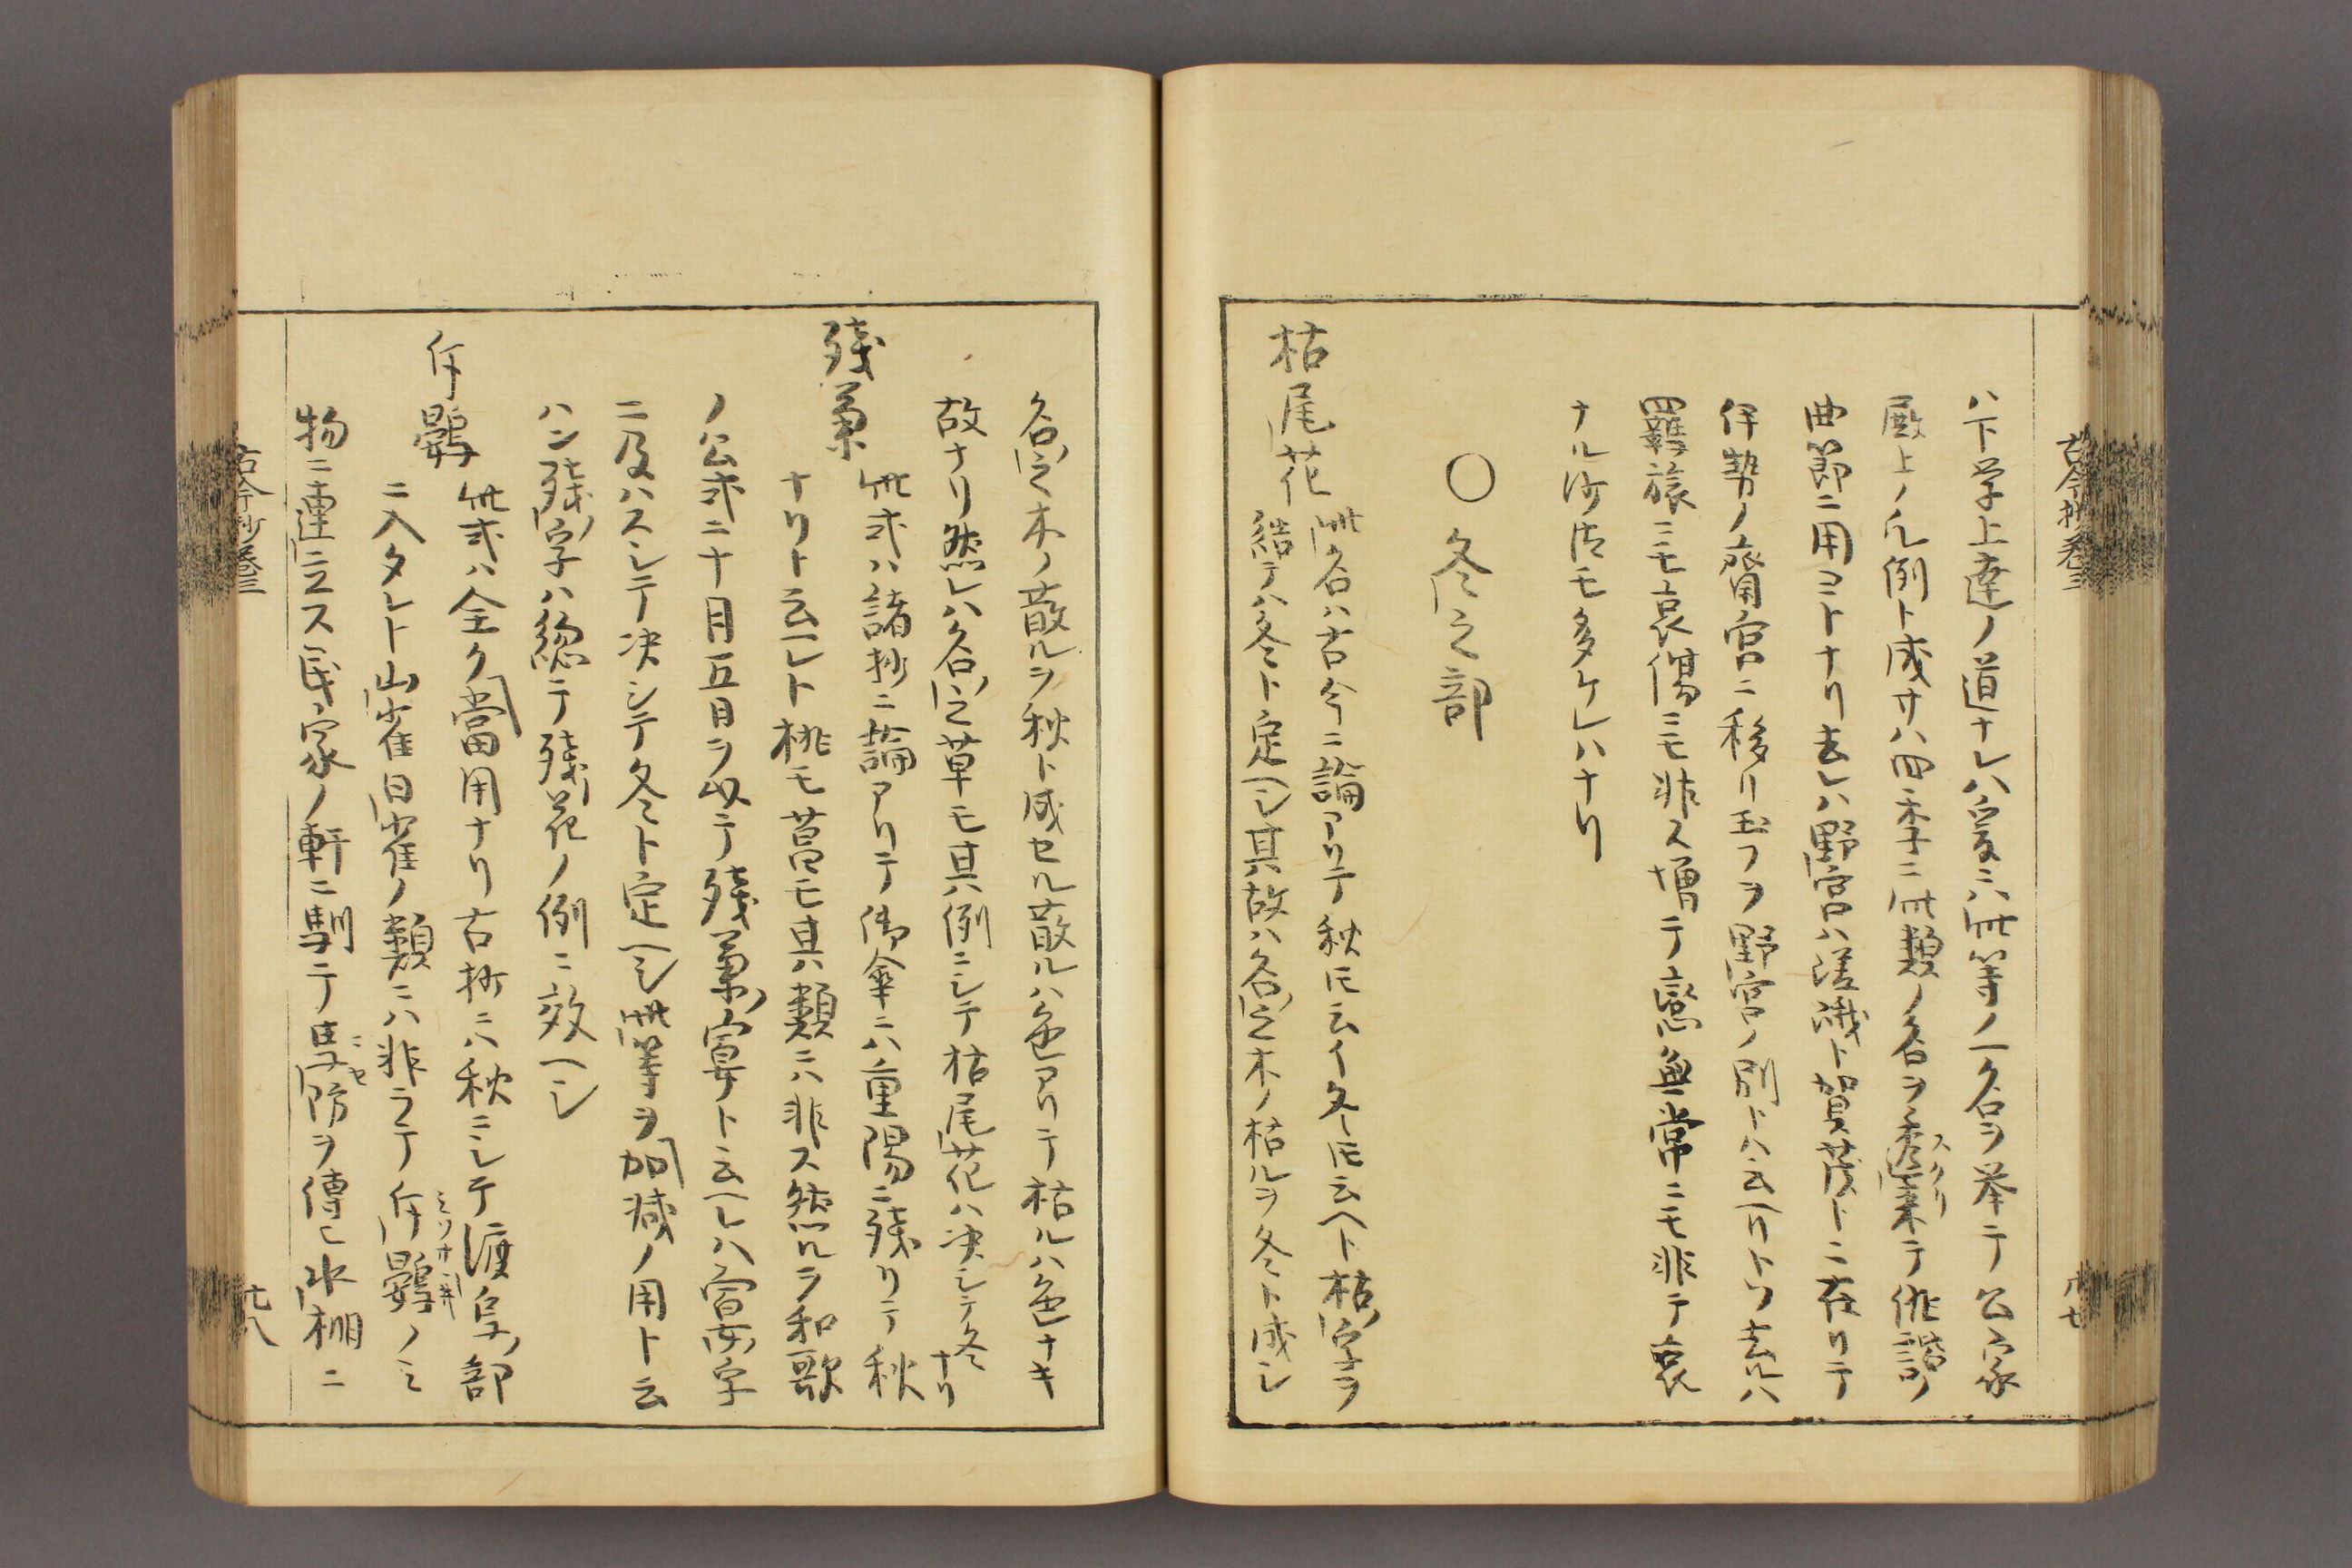 古今抄巻三
ハ下学上達ノ道ナレハ爰ニハ此等ノ一名ヲ挙テ公家
殿上ノ凡例ト成サハ四季ニ此類ノ名ヲ秀ステ俳諧ノ
曲節ニ用コトナリ去レハ野宮ハ嵯峨ト賀茂トニ在リテ
伊勢ノ齋宮ニ移リ玉フヲ野宮ノ別トハ云ヘリトソ去レハ
羈旅ニモ哀傷ニモ非ス増テ戀無常ニモ非テ哀
ナル法モ多ケレハナリ
〇冬之部
枯尾花
此名ハ古今ニ論アリテ秋トモ云イ冬トモ云ヘト枯字ヲ
結テハ冬ト定ヘシ其故ハ名之木ノ枯ルヲ冬ト成シ
名之木ノ散ルヲ秋ト成セル散ルハ色アリテ枯ルハ色ナキ
故ナリ然レハ名之草モ其例ニシテ枯尾花ハ決シテ冬ナリ
残菊
此式ハ諸抄ニ論アリテ御傘ニハ重陽ニ残リテ秋
ナリト云レト桃モ菖モ其類ニハ非ス然ルヲ和歌
ノ公式ニ十月五日ヲ以テ残菊宴ト云ヘレハ宴字
ニ及ハスシテ決シテ冬ト定ヘシ此等ヲ加減ノ用ト云
ハン残字ハ総テ残花ノ例ニ效ヘシ
斥鷃
此式ハ全ク當用ナリ古抄ニハ秋ニシテ渡鳥部
ニ入タレト山雀日雀ノ類ニハ非ラテ斥鷃ノミ
物ニ連立ス民家ノ軒ニ馴テ厚防ヲ傳ヒ水棚ニ
古今抄巻三